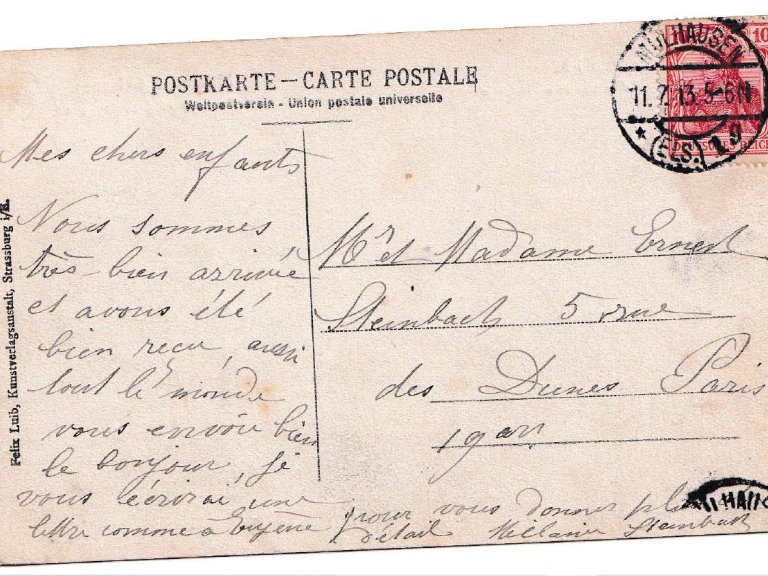 POSTKARTE – CARTE POSTALE
Weltpostverein - Union postale universelle
MÜLHAUSEN
11.7.13.5-6N
* (ELS.) 1.9
10
Mes chers enfants
Nous sommes
très bien arrivée
et avons été
bien reçu, aussi
tout le monde
vous envoie bien
le bonjour, je
vous écrirai une
lettre comme à Eugène pour vous donner plus
détail Mélanie Steinbach
Mr et Madame Ernest
Steinbach 5 rue
des Dunes Paris
19 arr
Felix Luib, Kunstverlagsanstalt, Strassburg i/E.